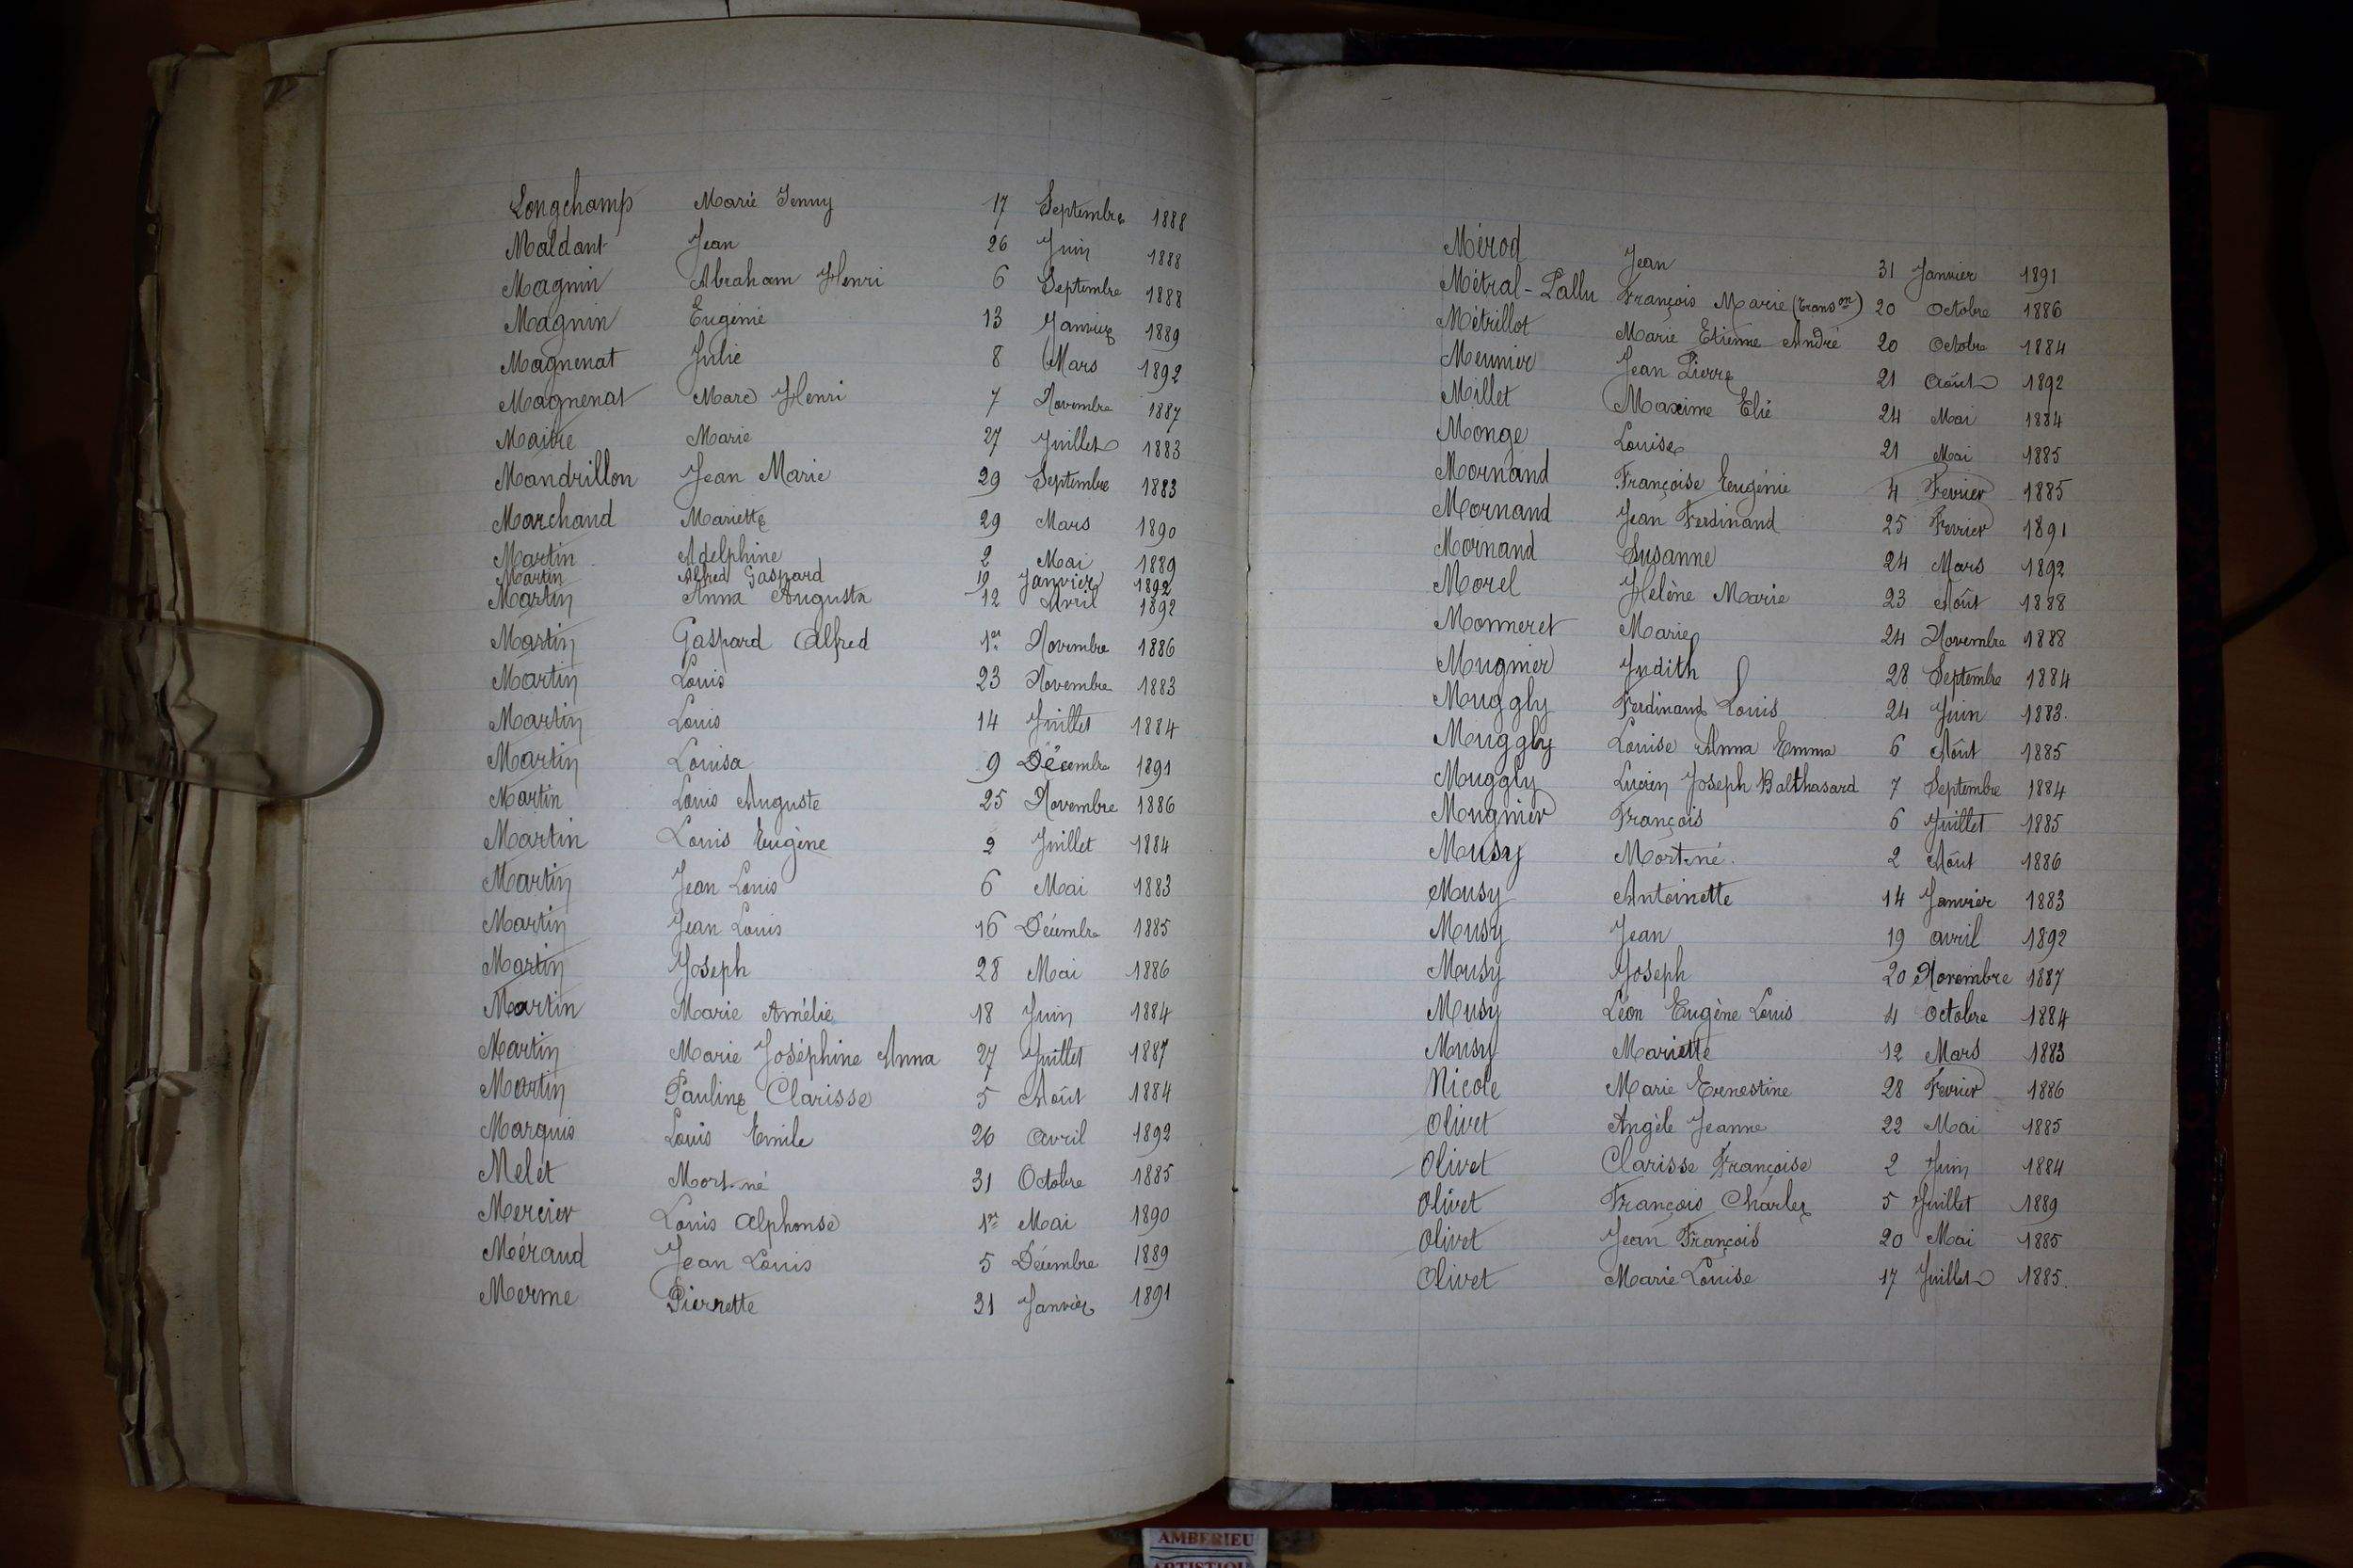 Longchamp Marie Jenny 17 Septembre 1888
Maldant Jean 26 Juin 1888
Magnin Abraham Henri 6 Septembre 1888
Magnin Eugénie 13 Janvier 1889
Magnenat Julie 8 Mars 1892
Magnenat Marc Henri 7 Novembre 1887
Maitre Marie 27 Juillet 1883
Mandrillon Jean Marie 29 Septembre 1883
Marchand Mariette 29 Mars 1890
Martin Adelphine 2 Mai 1889
Martin Alfred Gaspard 19 Janvier 1892
Martin Anna Augusta 12 Avril 1892
Martin Gaspard Alfred 1er Novembre 1886
Martin Louis 23 Novembre 1883
Martin Louis 14 Juillet 1884
Martin Louisa 9 Décembre 1891
Martin Louis Auguste 25 Novembre 1886
Martin Louis Eugène 2 Juillet 1884
Martin Jean Louis 6 Mai 1883
Martin Jean Louis 16 Décembre 1885
Martin Joseph 28 Mai 1886
Martin Marie Amélie 18 Juin 1884
Martin Marie Joséphine Anna 27 Juillet 1887
Martin Pauline Clarisse 5 Août 1884
Marquis Louis Emile 26 Avril 1892
Melet Mort-né 31 Octobre 1885
Mercier Louis Alphonse 1er Mai 1890
Méraud Jean Louis 5 Décembre 1889
Merme Pierrette 31 Janvier 1891
Mérod Jean 31 Janvier 1891
Métral-Pallu François Marie (transon) 20 Octobre 1886
Métrillot Marie Etienne André 20 Octobre 1884
Meunier Jean Pierre 21 Août 1892
Millet Maxime Elie 24 Mai 1884
Monge Louise 21 Mai 1885
Mornand Françoise Eugénie 4 Fevrier 1885
Mornand Jean Ferdinand 25 Fevrier 1891
Mornand Susanne 24 Mars 1892
Morel Helène Marie 23 Août 1888
Monneret Marie 24 Novembre 1888
Mugnier Judith 28 Septembre 1884
Muggly Ferdinand Louis 24 Juin 1883.
Muggly Louise Anna Emma 6 Août 1885
Muggly Lucien Joseph Balthasard 7 Septembre 1884
Mugnier François 6 Juillet 1885
Musy Mort-né. 2 Août 1886
Musy Antoinette 14 Janvier 1883
Musy Jean 19 avril 1892
Musy Joseph 20 Novembre 1887
Musy Léon Eugène Louis 4 Octobre 1884
Musy Mariette 12 Mars 1883
Nicole Marie Ernestine 28 Fevrier 1886
Olivet Angèle Jeanne 22 Mai 1885
Olivet Clarisse Françoise 2 Juin 1884
Olivet François Charles 5 Juillet 1889
Olivet Jean François 20 Mai 1885
Olivet Marie Louise 17 Juillet 1885.
AMBERIEU
ARTISTIQU